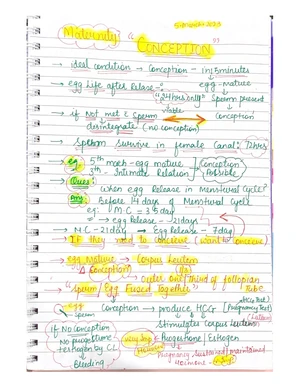 Maternity
" CONCEPTION "
→ ideal condition → Conception - in 15 minutes
→ egg Life after Release:- egg - Mature
"24 hrs only" Sperm present
viable Conception
→ if Not met è Sperm
desintegrate (no conception)
→ Sperm Survive in female Canal: 72hrs
→ eg: 5th - egg mature Conception
7th - Intimate Relation Possible
→ Ques: When egg Release in Menstrual Cycle?
→ Ans: Before 14 days of Menstrual Cycle
eg: MC - 35 day
→ egg Release - 21 days
→ MC - 21 day → Egg Release - 7 day
IF they need to conceive (want to conceive)
→ egg Mature → Corpus Leuteum
Conception
→ outer one third of fallopian Tube
→ "Sperm / Egg Fused Together"
→ egg Conception → produce HCG (Pregnancy Test)
Sperm
Stimulates Corpus Leuteum
If No Conception
No progesterone
estrogen by CL
Bleeding
Progesterone / Estrogen
Pregnancy sustained maintained